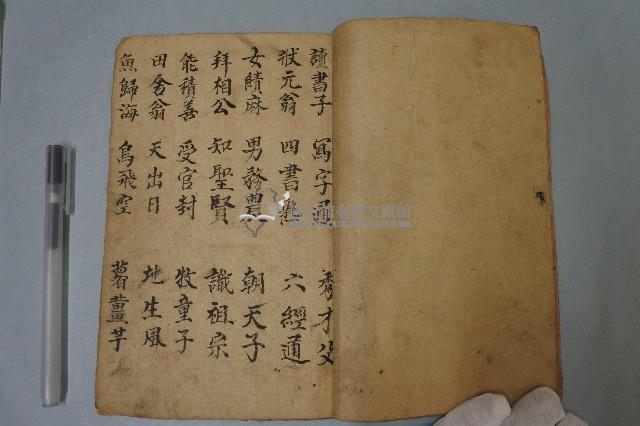 讀書子 寫字 秀才父
狀元翁 四書熟 六經通
女績麻 男務農 朝天子
拜相公 知聖賢 識祖宗
能積善 受官封 牧童子
田舍翁 天出日 地生風
魚歸海 鳥飛空 薯薑芋
臺灣文獻館